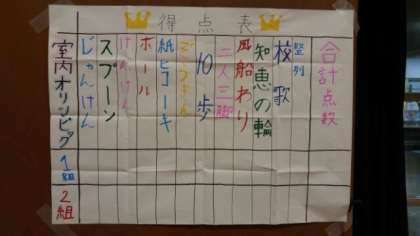 得点表
室内オリンピック
じゃんけん
スプーン
けんけん
ボール
紙ヒコーキ
10歩
二人三脚
風船わり
知恵の輪
校歌
整列
合計点数
1組
2組